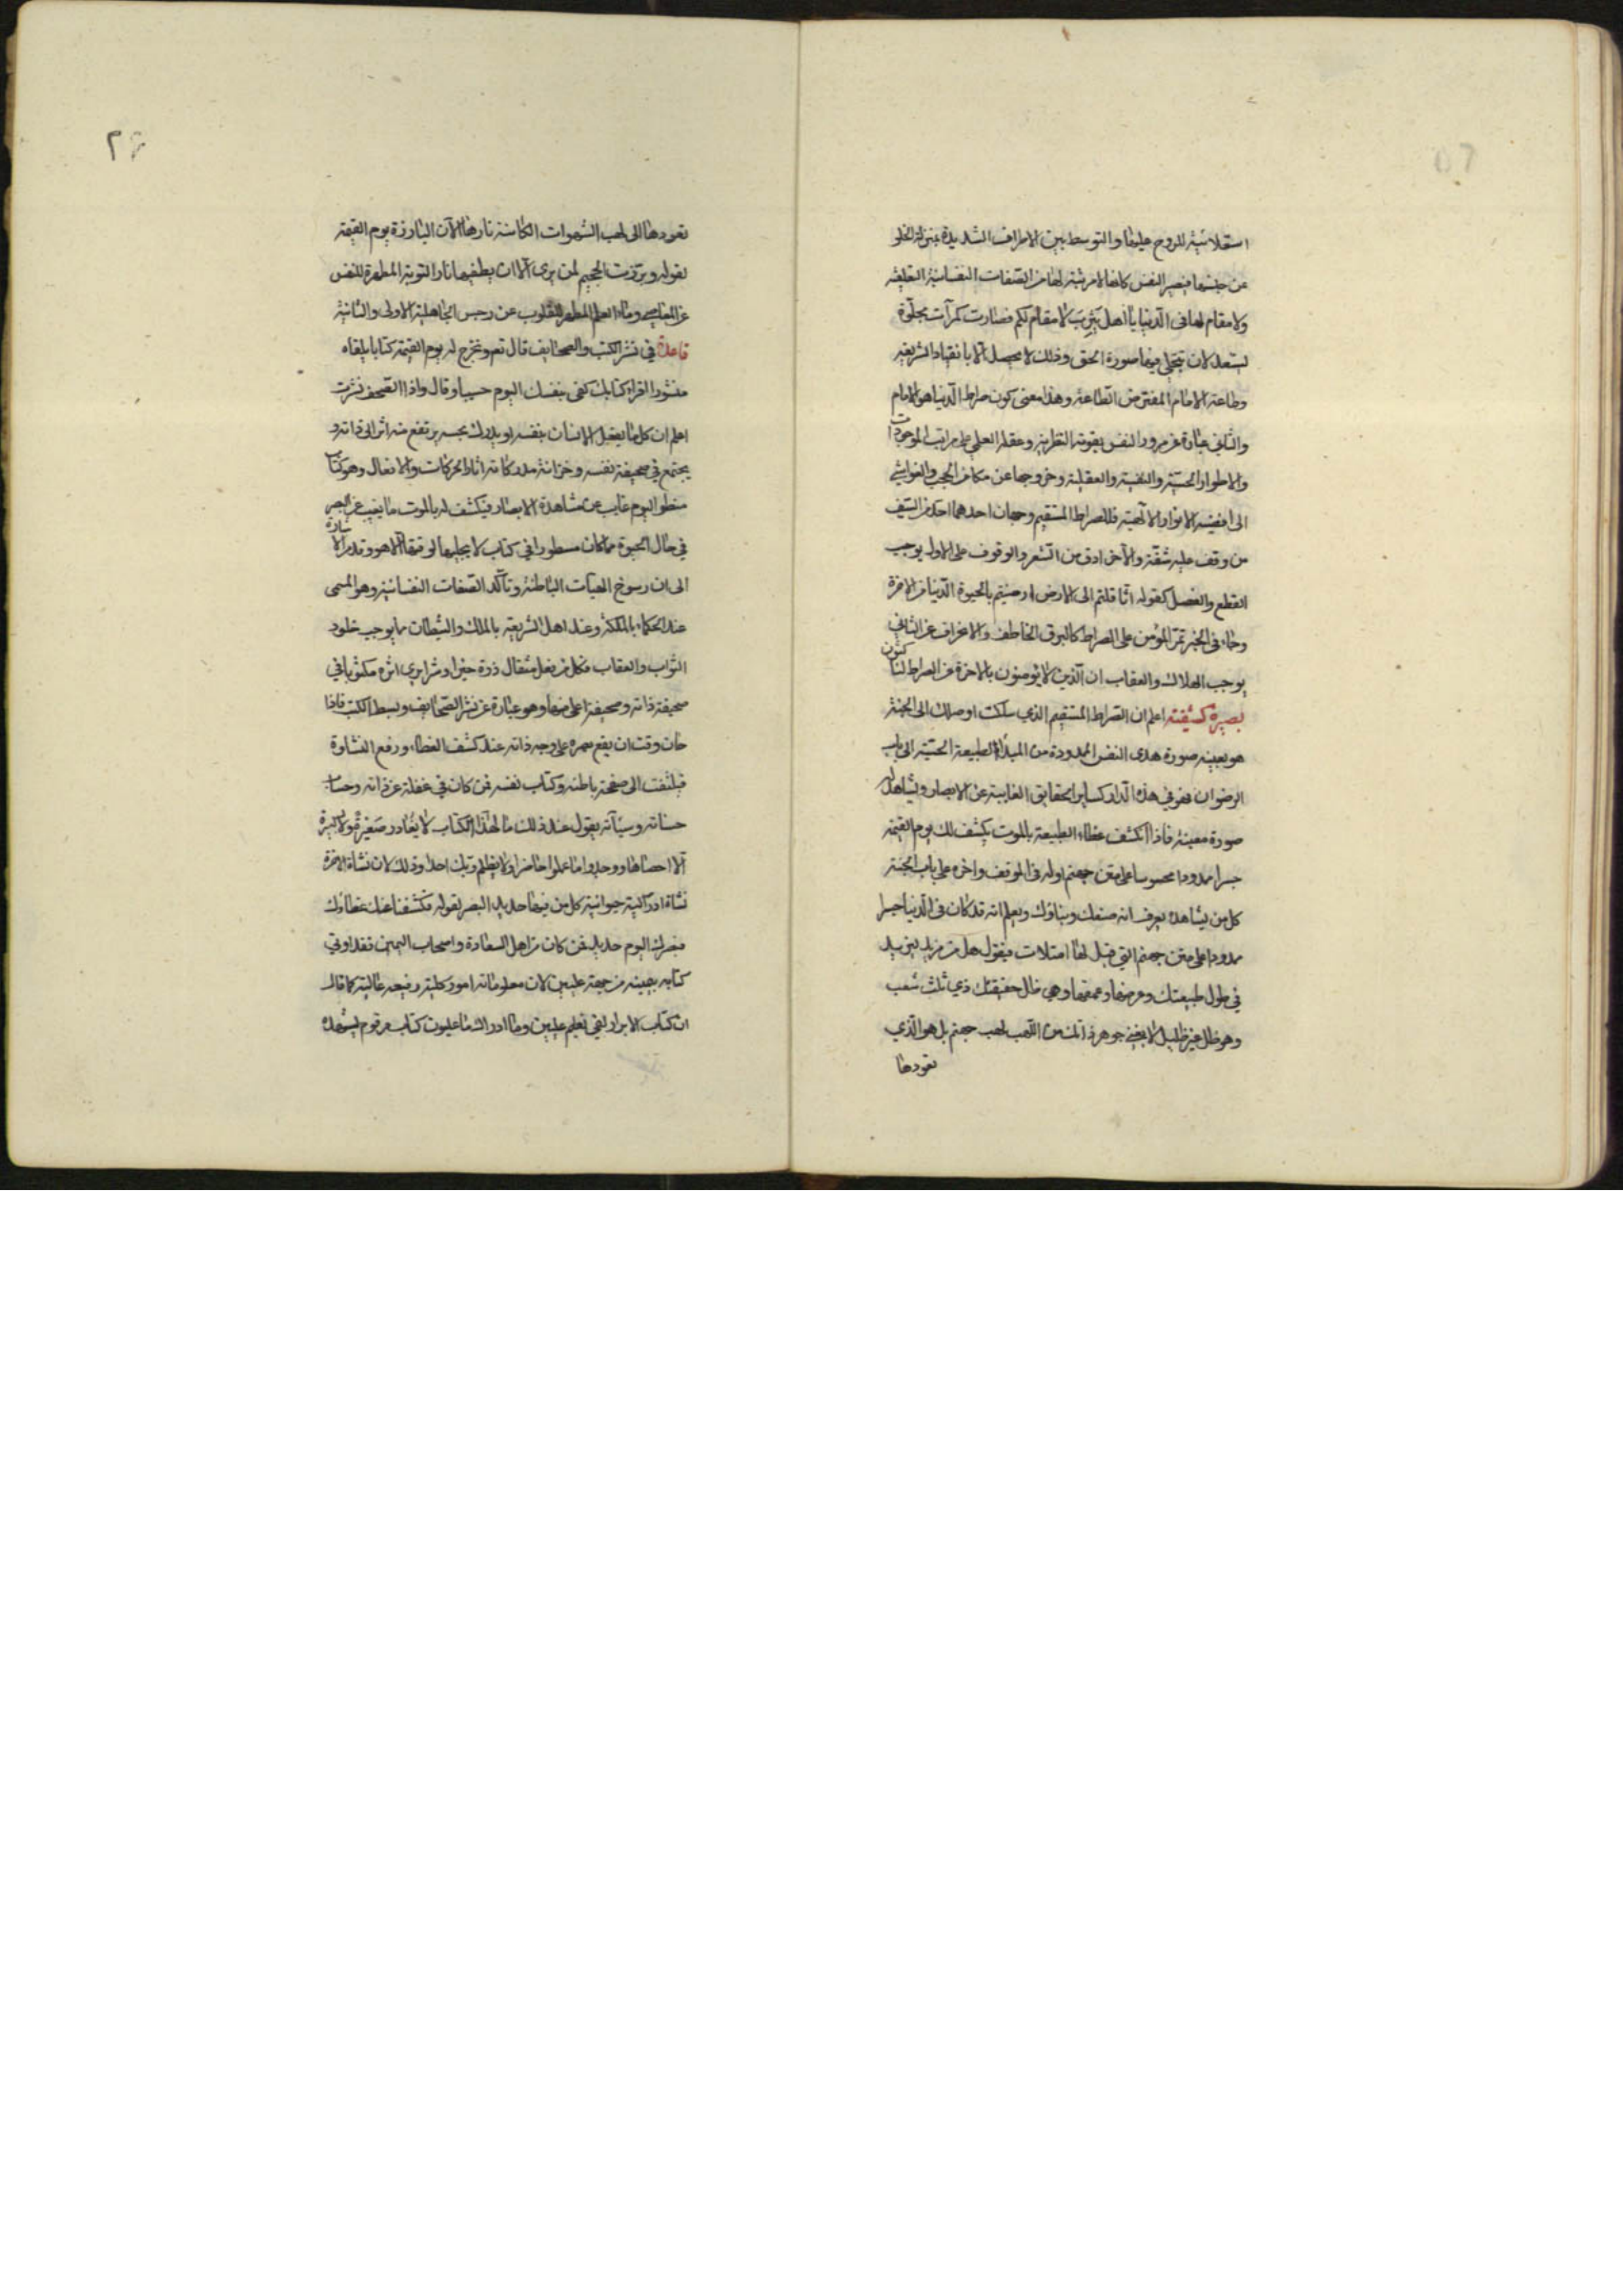 استعلائية للروح عليها والتوسط بين الاطراف الشديدة بمنزلة الخلو
عن جنسها فيصير النفس كانها لا مرتبة لها من الصفات النفسانية التعلقية
ولا مقام لها في الدنيا يا أهل يثرب لا مقام لكم فصارت كمرآت مجلوة
ليستعد لان تتجلى فيها صورة الحق وذلك لا يحصل الا بانقياد الشريعة
وطاعة الامام المفترض الطاعة وهذا معنى كون صراط الدنيا هو الامام
والثاني عبارة عن مرور النفس بقوته النظرية وعقله العلمي على مراتب الموجودات
والاطوار الحسية والنفسية والعقلية وخروجها عن مكامن الحجب والغواشي
الى افضية الانوار الالهية فللصراط المستقيم وجهان احدهما احد من السيف
من وقف عليه شقته والآخر ادق من الشعر والوقوف على الاول يوجب
القطع والفصل كقوله اثاقلتم الى الارض ارضيتم بالحيوة الدنيا من الاخرة
وجاء في الخبر تمر المؤمن على الصراط كالبرق الخاطف والانحراف عن الثاني
يوجب الهلاك والعقاب ان الذين لا يؤمنون بالاخرة عن الصراط لناكبون
بصيرة كشفية اعلم ان الصراط المستقيم الذي سلكت اوصلك الى الجنة
هو بعينه صورة هدى النفس الممدودة من المبدأ الطبيعة الحسية الى باب
الرضوان فهو في هذه الدار كساير الحقايق الغايبة عن الابصار ولا يشاهد له
صورة معينة فاذا انكشف غطاء الطبيعة بالموت يكشف لك يوم القيمة
جسرا ممدودا محسوسا على متن جهنم اوله في الموقف واخره على باب الجنة
كل من يشاهده يعرف انه صنعك وبناؤك ويعلم انه قد كان في الدنيا جسرا
ممدودا على متن جهنم التي قيل لها امتلات فيقول هل من مزيد ليزيد
في طول طبيعتك وعرضها وعمقها وهي ظل حقيقتك ذي ثلث شعب
وهو ظل غير ظليل لا يغني جوهر ذاتك من اللهب لهب جهنم بل هو الذي
تقودها
تقودها الى لهب الشهوات الكامنة نارها الآن البارزة يوم القيمة
لقوله وبرزت الجحيم لمن يرى الا ان يطفيها نار التوبة المطهرة للنفس
عن المعاصي وماء العلم المطهر للقلوب عن رجس الجاهلية الاولى والثانية
قاعدة في نشر الكتب والصحايف قال تعم ونخرج له يوم القيمة كتابا يلقاه
منشورا اقراء كتابك كفى بنفسك اليوم حسيبا وقال واذا الصحف نشرت
اعلم ان كل ما يفعل الانسان بنفسه او يدرك بحسه يرتفع منه اثر الى ذاته و
يجتمع في صحيفة نفسه وخزانة مدركاته اثار الحركات والافعال وهو كتاب
منطو اليوم غايب عن مشاهدة الابصار فيكشف له بالموت ما يغيب عن البصر
في حال الحيوة مما كان مسطورا في كتاب لا يجليها لوقتها الا هو وقد مر الاشارة
الى ان رسوخ الهيآت الباطنة وتأكد الصفات النفسانية وهو المسمى
عند الحكماء بالملكة وعند اهل الشريعة بالملك والشيطان مما يوجب خلود
الثواب والعقاب فكل من فعل مثقال ذرة خيرا وشرا يرى اثره مكتوبا في
صحيفة ذاته وصحيفة اعلى منها وهو عبارة عن نشر الصحايف وبسط الكتب فاذا
حان وقت ان يقع بصره على وجه ذاته عند كشف الغطاء ورفع الغشاوة
فيلتفت الى صفحة باطنه وكتاب نفسه فمن كان في غفلة عن ذاته وحساب
حسناته وسيآته يقول عند ذلك ما لهذا الكتاب لا يغادر صغيرة ولا كبيرة
الا احصاها ووجدوا ما عملوا حاضرا ولا يظلم ربك احدا وذلك لان نشأة الاخرة
نشأة ادراكية حيوانية كل من فيها حديد البصر لقوله فكشفنا عنك غطاءك
فبصرك اليوم حديد فمن كان من اهل السعادة واصحاب اليمين فقد اوتي
كتابه بيمينه من جهة عليين لان معلوماته امور كلية رفيعة عالية كما قال
ان كتاب الابرار لفي نعليم عليين وما ادراك ما عليون كتاب مرقوم يشهده